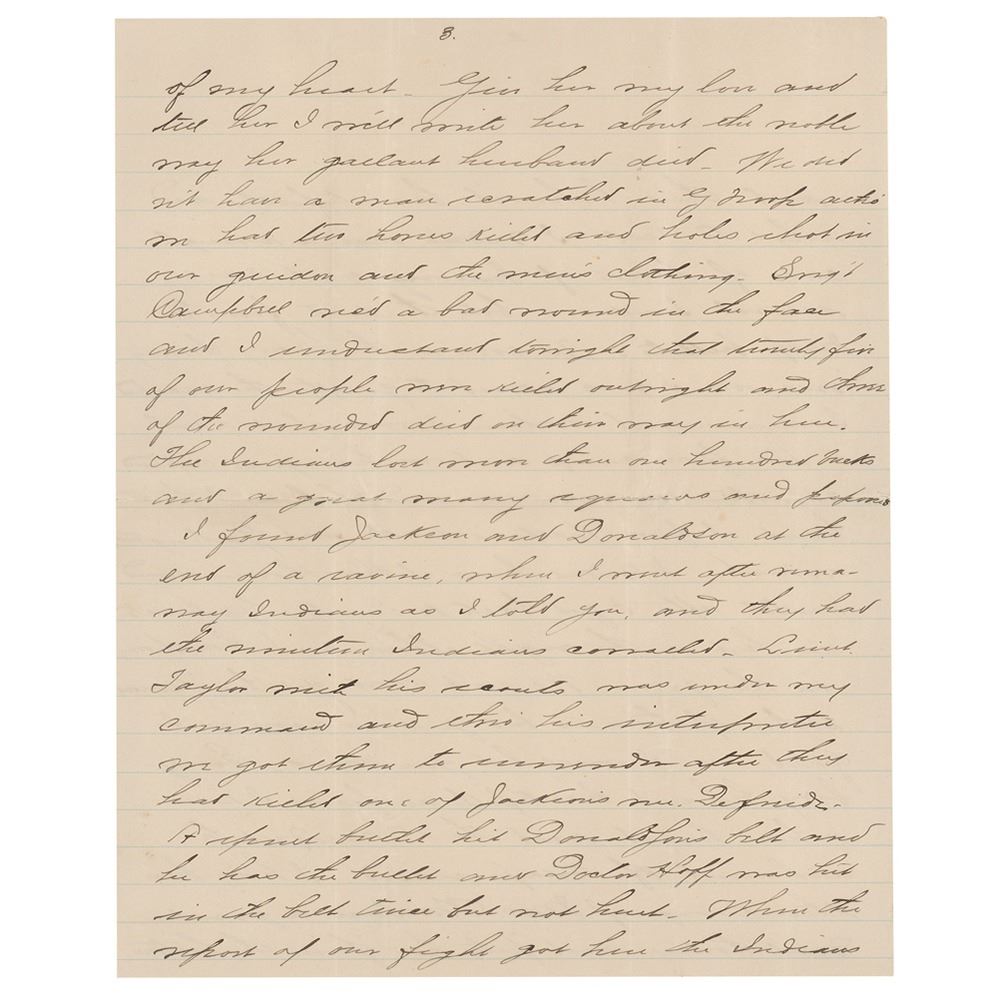 3.
of my heart - Give her my love and
tell her I will write her about the noble
way her gallant husband died - We did
n't have a man scratched in G Troop altho
we had two horses killed and holes shot in
our guidon and the men's clothing - Serg't
Campbell rec'd a bad wound in the face
and I understand tonight that twenty five
of our people were killed outright and three
of the wounded died on their way in here.
The Indians lost more than one hundred bucks
and a great many squaws and
I found Jackson and Donaldson at the
end of a ravine, when I went after runa-
way Indians as I told you, and they had
the nineteen Indians corralled - Lieut.
Taylor with his scouts was under my
command and thro his interpreter
we got them to surrender after they
had killed one of Jackson's men.
A spent bullet hit Donaldson's belt and
he has the bullet and Doctor Hoff was hit
in the belt twice but not hurt - When the
report of our fight got here the Indians